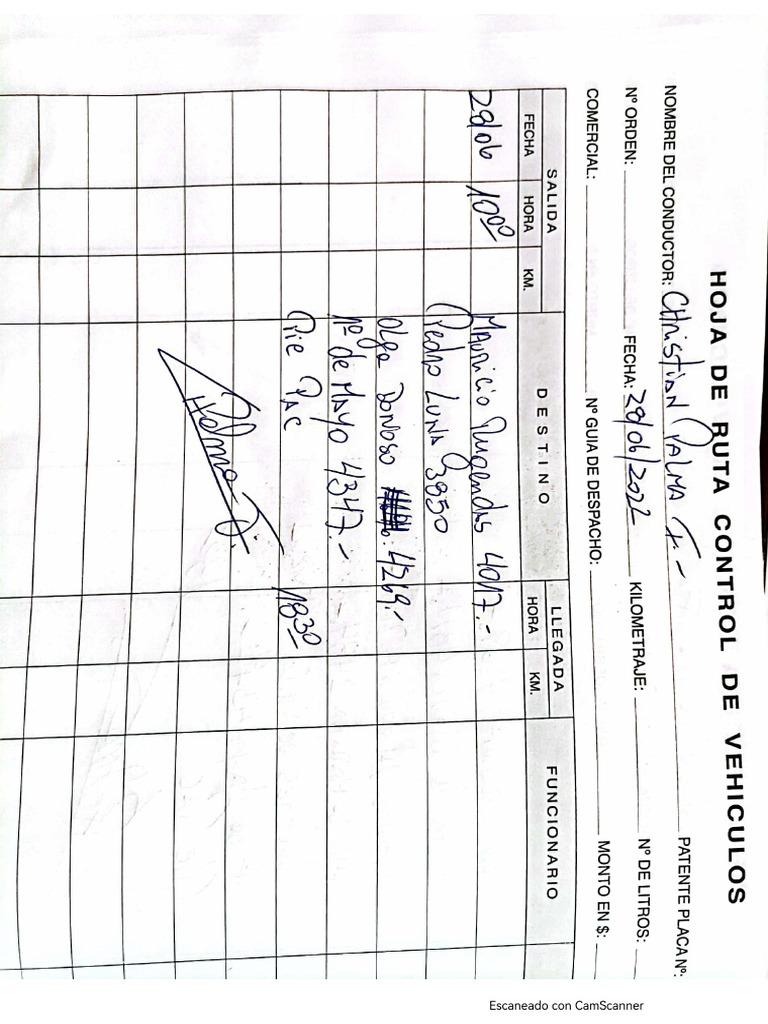 HOJA DE RUTA CONTROL DE VEHICULOS
NOMBRE DEL CONDUCTOR: CHRISTIAN PALMA F.- PATENTE PLACA Nº:
Nº ORDEN: FECHA: 28/06/2022 KILOMETRAJE: Nº DE LITROS:
COMERCIAL: Nº GUIA DE DESPACHO: MONTO EN $:
SALIDA DESTINO LLEGADA FUNCIONARIO
FECHA HORA KM. HORA KM.
28/06 10:00 MAURICIO Rugendas 4017.-
PEDRO LUNA 3850
OLGA DONOSO 4269.-
1º de MAYO 4347.-
PAC 18:30
Escaneado con CamScanner